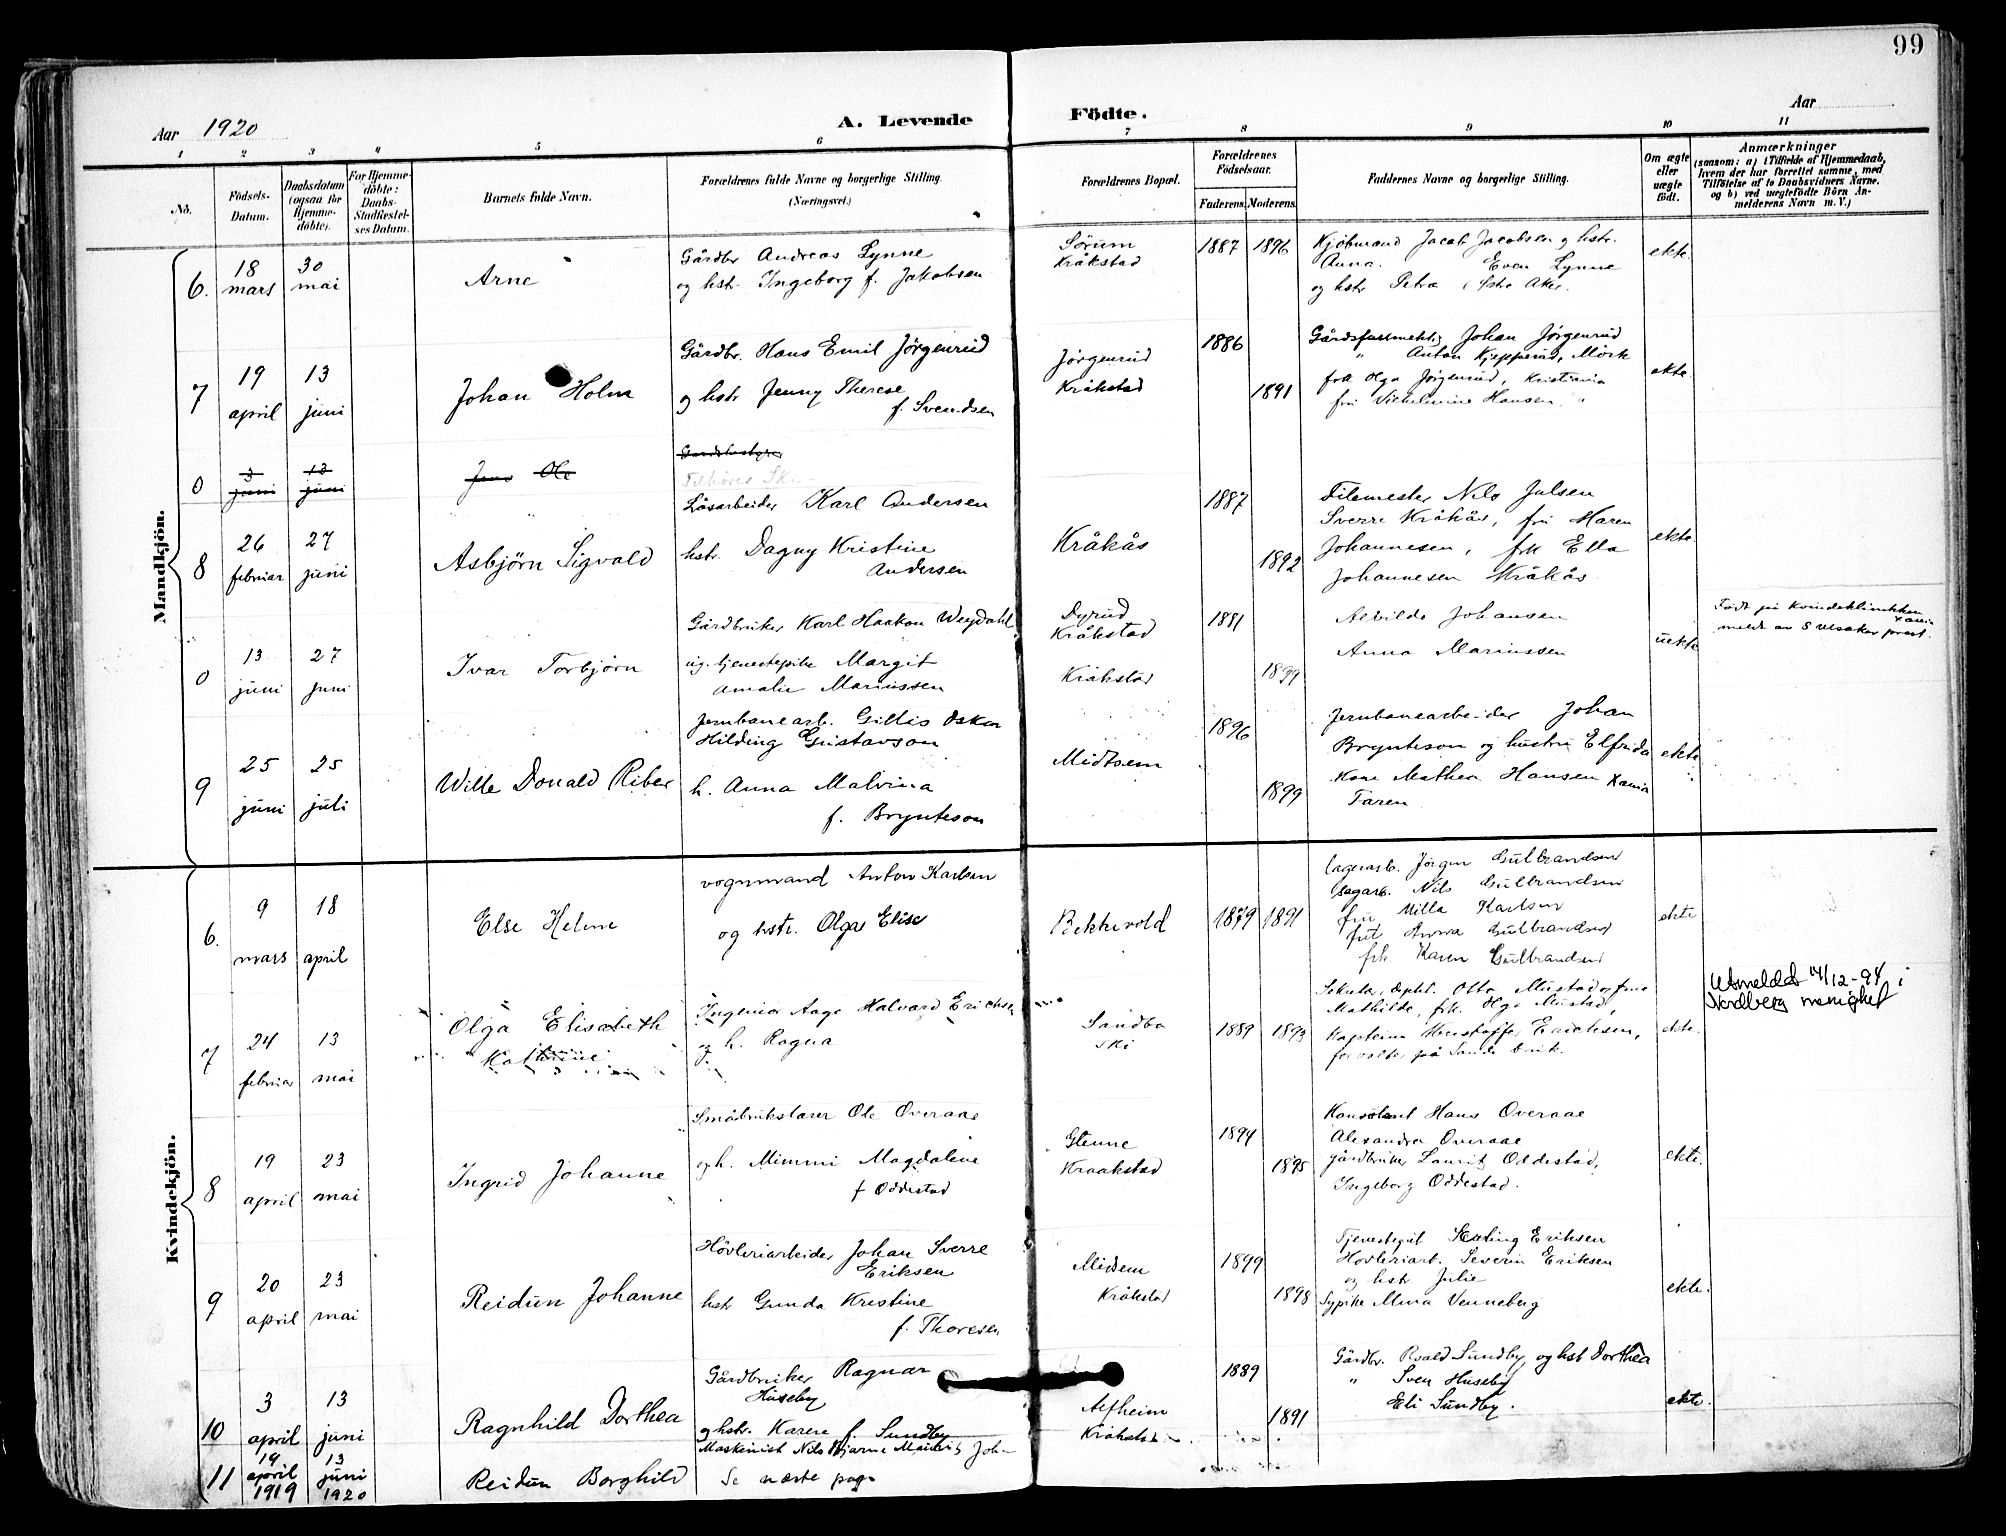 99
Aar 1920
A. Levende Födte.
Aar
1 2 3 4 5 6 7 8 9 10 11
No.
Födsels-Datum.
Daabsdatum (ogsaa for Hjemme-döbte).
For Hjemme-döbte: Daabs-Stadfæstel-ses Datum.
Barnets fulde Navn.
Forældrenes fulde Navne og borgerlige Stilling. (Næringsvei.)
Forældrenes Bopæl.
Forældrenes Födselsaar.
Faderens. Moderens.
Faddernes Navne og borgerlige Stilling.
Om ægte eller uægte födt.
Anmærkninger
(saasom: a) i Tilfælde af Hjemmedaab,
hvem der har forrettet samme, med
Tilföielse af to Daabsvidners Navne.
og b) ved uægtefödte Börn An-
melderens Navn m. V.)
Mandkjön.
6. 18 mars 30 mai Arne
Gårdbr Andreas Lynne
og hstr. Ingeborg f. Jakobsen
Sørum
Kråkstad
1887 1896
Kjöbmand Jacob Jacobsen og hstr.
Anna. Even Lynne
og hstr Petra i Østre Aker.
ekte.
7 19 april 13 juni Johan Holm
Gårdbr. Hans Emil Jörgenrud
og hstr Jenny Therese
f. Svendsen
Jörgenrud
Kråkstad
1886
1891
Johan Jörgenrud
" Anton Kjepperud, Mörk
frk Olga Jörgenrud, Kristiania
fru Vilhelmine Hansen "
ekte.
0 3 juni 13 juni Jens Ole
8 26 februar 27 juni Asbjörn Sigvald
Karl Andersen
hstr. Dagny Kristine
Andersen
Kråkås
1887
1892
Filemester Nils Julsen
Sverre Kråkås, fru Haren
Johannesen, frk Ella
Johannesen Kråkås
ekte
0 13 juni 27 juni Ivar Torbjörn
Gårdbruker Karl Haakon Weydahl
ug. tjenestepike Margit
Amalie Mariussen
Dyrud
Kråkstad
Kråkstad
1881
1899
Alvilde Johansen
Anna Mariussen
uekte
Født på Kvindeklinikken
Xania
meldt av S Ulsaker prest.
9 25 juni 25 juli Wille Donald Riber
Jernbanearb. Gillis Oskar
Hilding Gustavson
h. Anna Malvina
f. Brynteson
Midtsem
1896
1899
Jernbanearbeider Johan
Brynteson og hustru Elfrida
Kone Mathea Hansen Xania
Faren
ekte
Kvindekjön.
6. 9 mars 18 april Else Helene
vognmand Anton Karlsen
og hstr. Olga Elise
Bekkevold
1879 1891
lagerarb. Jörgen Gulbrandsen
sagarb. Nils Gulbrandsen
fru Milla Karlsen
frk Anna Gulbrandsen
frk. Karen Gulbrandsen
ekte
7 24 februar 13 mai Olga Elisabeth
Kathrine
Ingeniør Aage Halvard Erichsen
og h. Ragna
Sandbo
Ski
1889 1893
Otto Mustad og frue
Mathilde, frk. Olga Mustad,
Erichsen,
ekte.
Utmeldt 14/12-94 i
Nordberg menighet
8 19 april 23 mai Ingrid Johanne
Småbrukslærer Ole Overaae
og h. Mimmi Magdalene
f Oddestad
Glenne
Kraakstad
1894
1895
Hans Overaae
Alexandra Overaae
gårdbruker Laurits Oddestad,
Ingeborg Oddestad.
ekte.
9 20 april 23 mai Reidun Johanne
Hövleriarbeider Johan Sverre
Eriksen
hstr Gunda Kristine
f. Thoresen
Midsem
Kråkstad
1899
1898
Tjenestegut Erling Eriksen
Hövleriarb. Severin Eriksen
og hstr Julie
Sypike Mina Venneberg
ekte.
10 3 april 13 juni Ragnhild Dorthea
Gårdbruker Ragnar
Huseby
og hstr. Karen f. Sundby
Alfheim
Kråkstad
1889
1891
Gårdbr. Roald Sundby og hst Dorthea
" Sven Huseby
Eli Sundby.
ekte.
11 19 april 1919 13 juni 1920 Reidun Borghild
Maskinist Nils Bjarne Mauritz Joh-
Se næste page